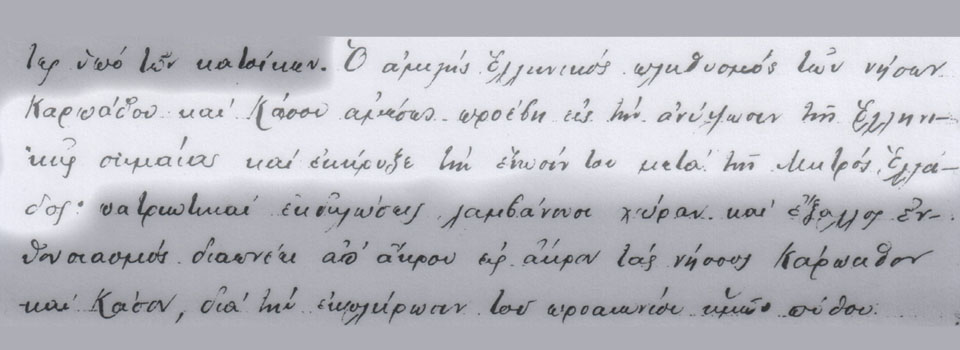 τες ὑπό τῶν κατοίκων. Ὁ ἀμιγής Ἑλληνικός πληθυσμός τῶν νήσων
Καρπάθου καί Κάσου ἀμέσως προέβη εἰς τήν ἀνύψωσιν τῆς Ἑλληνι-
κῆς σημαίας καί ἐκήρυξε τήν ἕνωσίν του μετά τῆς Μητρός Ἑλλά-
δος· πατριωτικαί ἐκδηλώσεις λαμβάνουσι χώραν καί ἔξαλλος ἐν-
θουσιασμός διαπνέει ἀπ' ἄκρου εἰς ἄκρον τάς νήσους Κάρπαθον
καί Κάσον, διά τήν ἐκπλήρωσιν τοῦ προαιωνίου ἡμῶν πόθου.